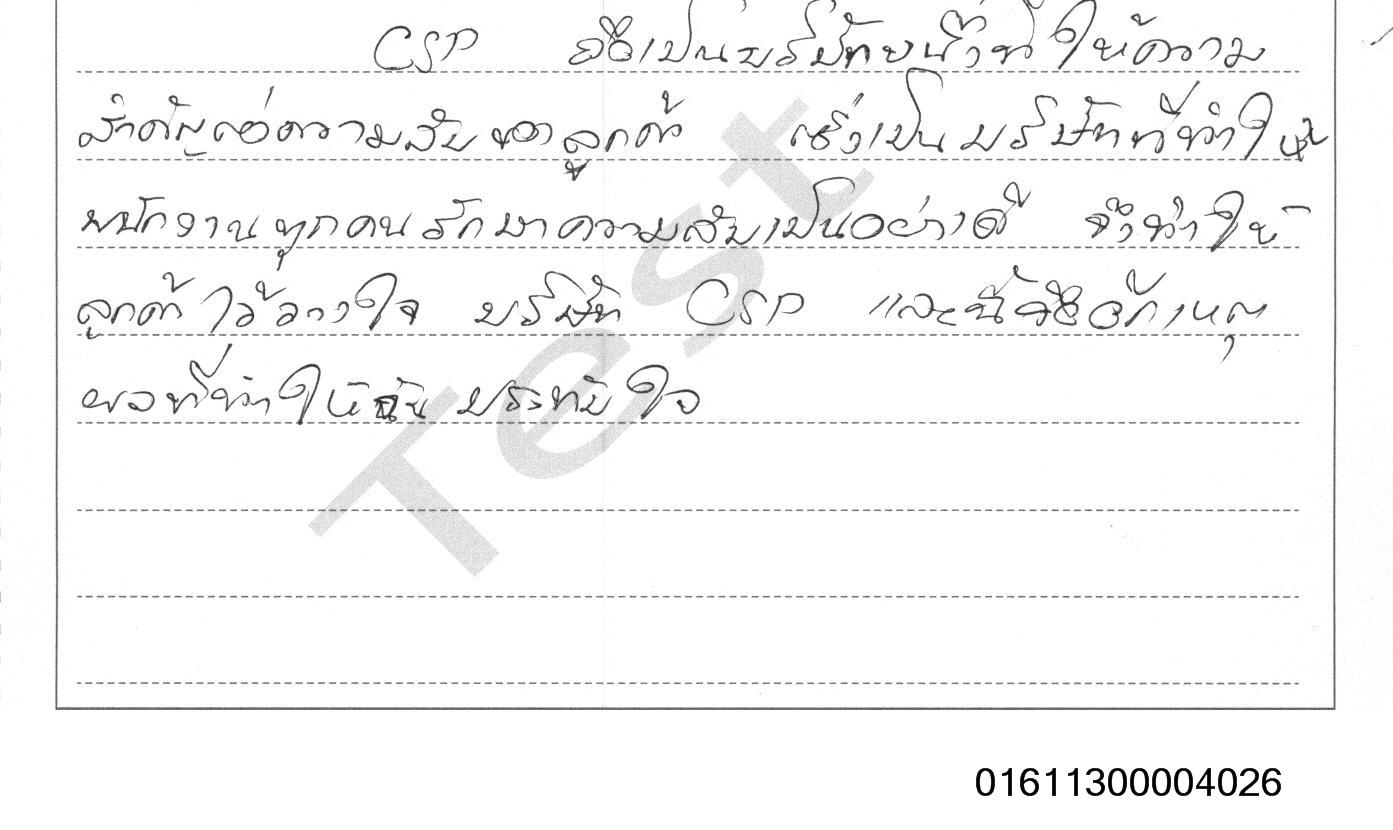 CSP ถือเป็นบริษัทหนึ่งที่ให้ความ
สำคัญต่อความลับของลูกค้า ซึ่งเป็นบริษัทที่ทำให้
พนักงานทุกคนรักษาความลับเป็นอย่างดี จึงทำให้
ลูกค้าไว้วางใจ บริษัท CSP และนี่คืออีกเหตุ
ผลที่ทำให้ฉันประทับใจ
Test
01611300004026